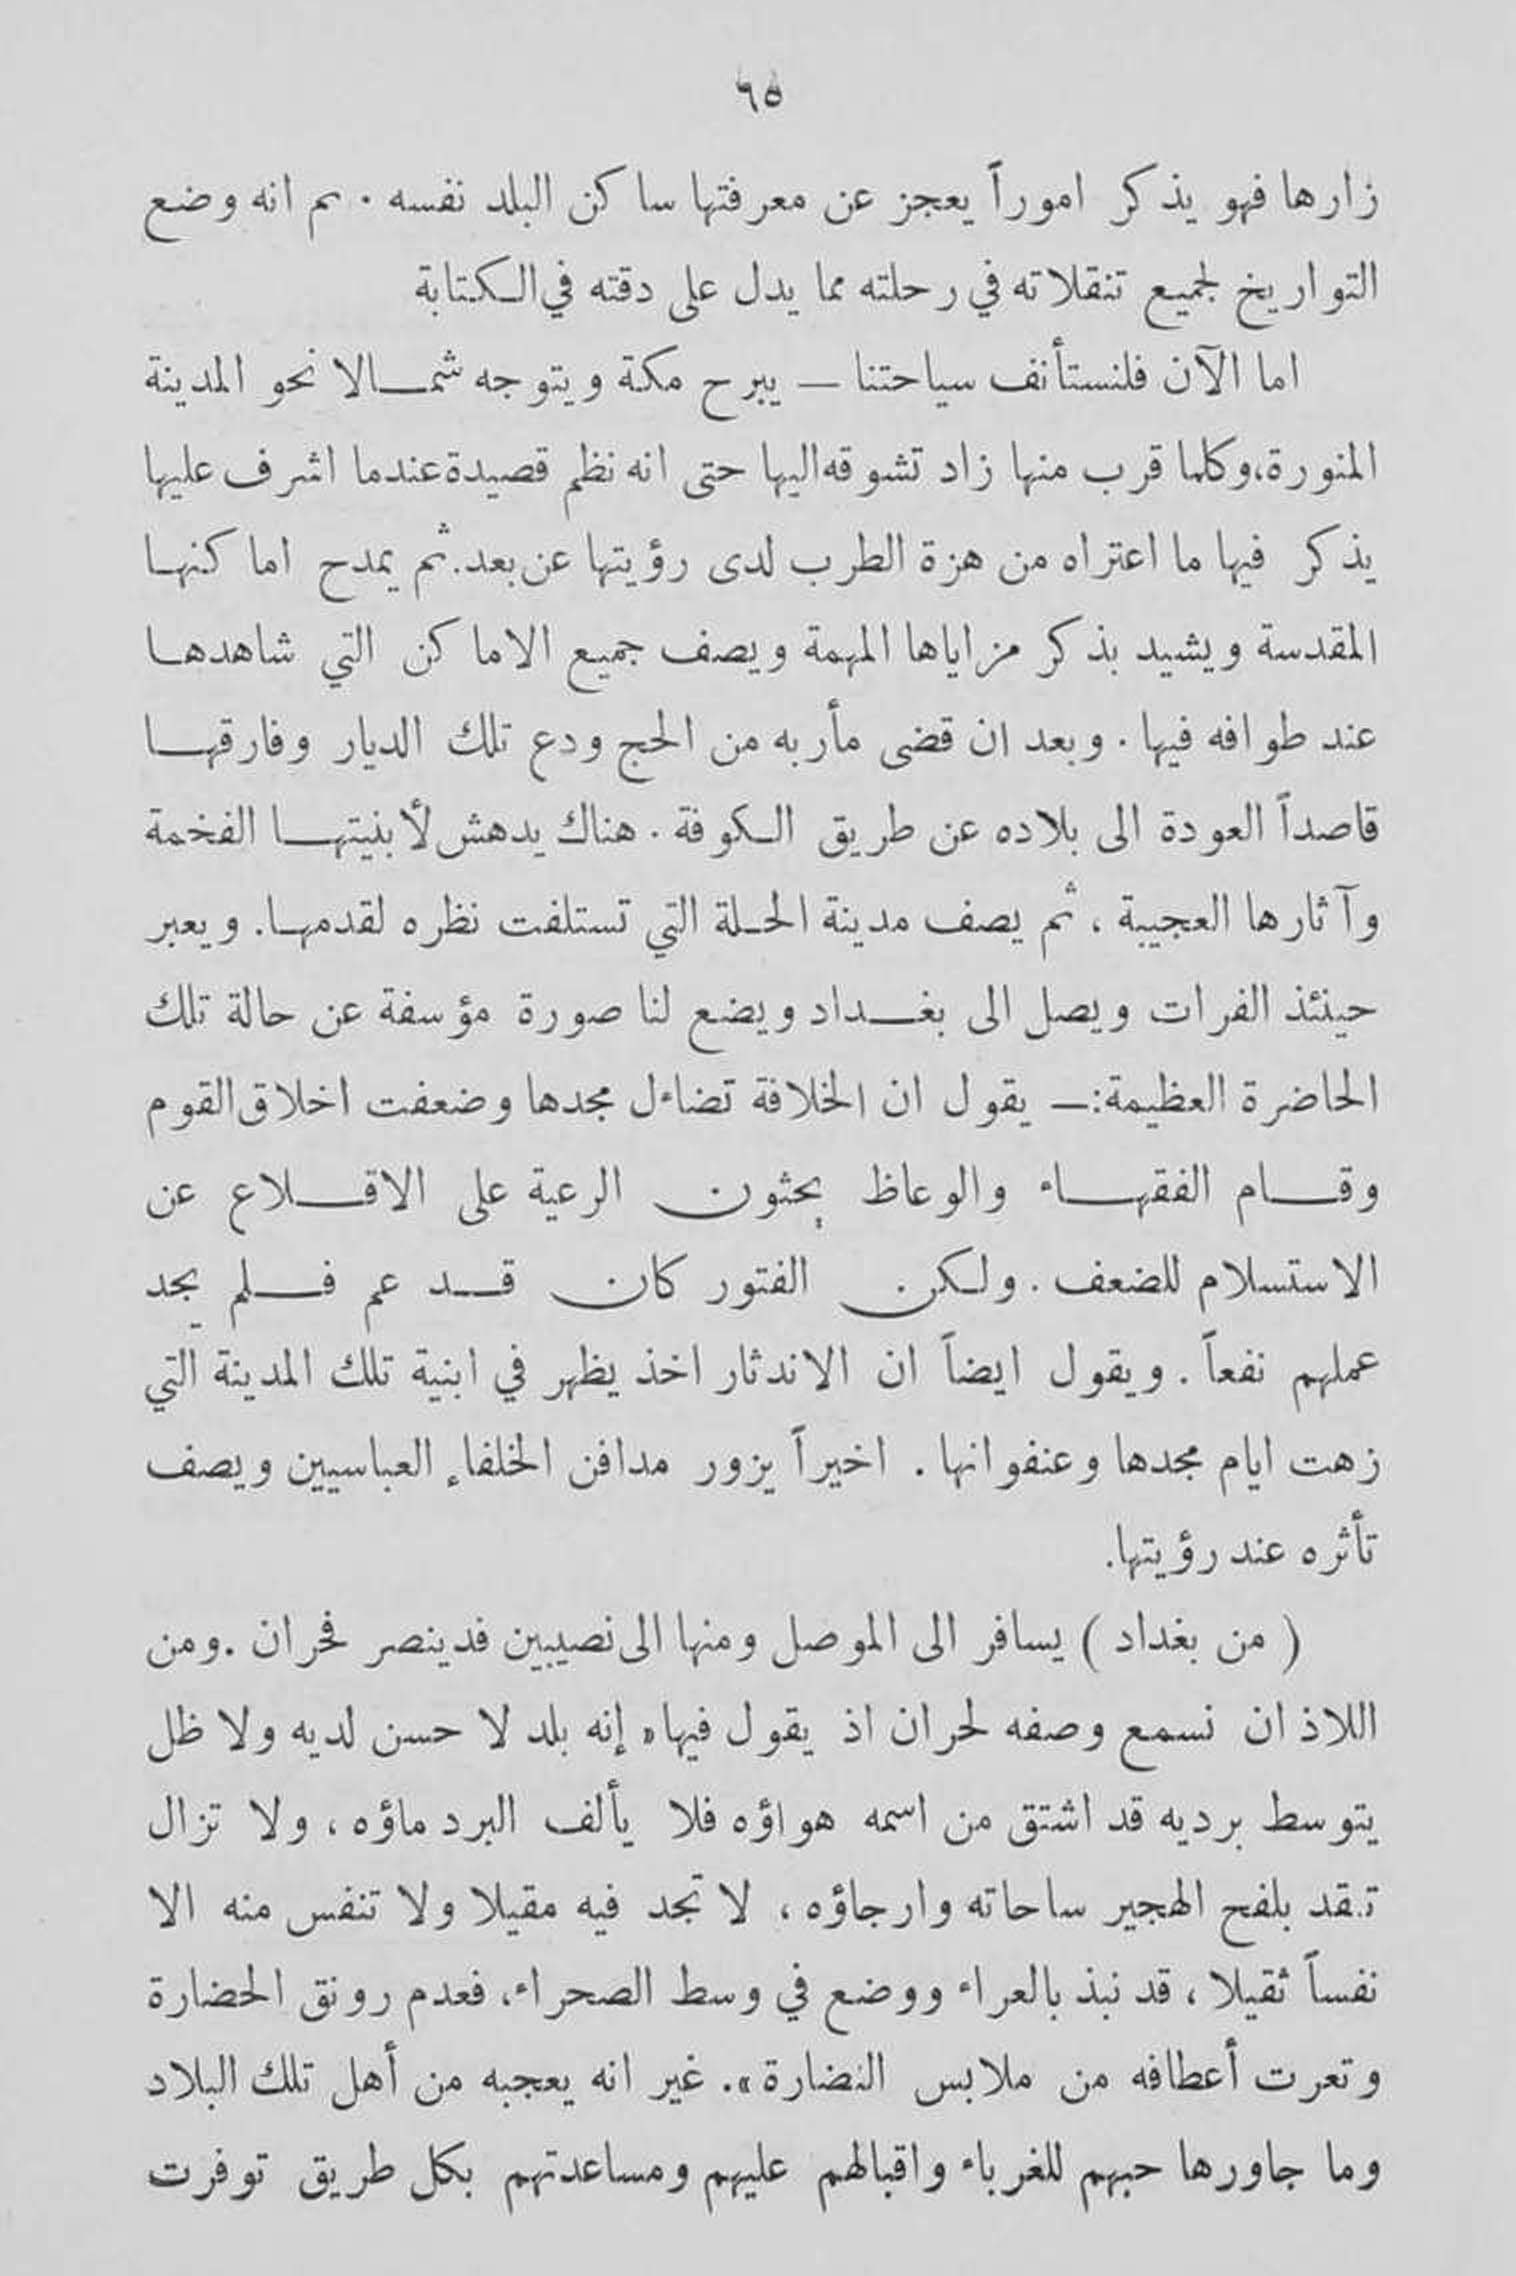 ٦٥
زارها فهو يذكر اموراً يعجز عن معرفتها ساكن البلد نفسه . ثم انه وضع
التواريخ لجميع تنقلاته في رحلته مما يدل على دقته في الكتابة
اما الآن فلنستأنف سياحتنا — يبرح مكة ويتوجه شمالا نحو المدينة
المنورة، وكلما قرب منها زاد تشوقه اليها حتى انه نظم قصيدة عندما اشرف عليها
يذكر فيها ما اعتراه من هزة الطرب لدى رؤيتها عن بعد. ثم يمدح اماكنها
المقدسة ويشيد بذكر مزاياها المهمة ويصف جميع الاماكن التي شاهدها
عند طوافه فيها . وبعد ان قضى مأربه من الحج ودع تلك الديار وفارقها
قاصداً العودة الى بلاده عن طريق الكوفة . هناك يدهش لأبنيتها الفخمة
وآثارها العجيبة ، ثم يصف مدينة الحلة التي تستلفت نظره لقدمها. ويعبر
حينئذ الفرات ويصل الى بغداد ويضع لنا صورة مؤسفة عن حالة تلك
الحاضرة العظيمة:— يقول ان الخلافة تضاءل مجدها وضعفت اخلاق القوم
وقام الفقهاء والوعاظ يحثون الرعية على الاقلاع عن
الاستسلام للضعف . ولكن الفتور كان قد عم فلم يجد
عملهم نفعاً . ويقول ايضاً ان الاندثار اخذ يظهر في ابنية تلك المدينة التي
زهت ايام مجدها وعنفوانها . اخيراً يزور مدافن الخلفاء العباسيين ويصف
تأثره عند رؤيتها.
( من بغداد ) يسافر الى الموصل ومنها الى نصيبين فدينصر فحران . ومن
اللاذ ان نسمع وصفه لحران اذ يقول فيها « إنه بلد لا حسن لديه ولا ظل
يتوسط برديه قد اشتق من اسمه هواؤه فلا يألف البرد ماؤه ، ولا تزال
تتقد بلفح الهجير ساحاته وارجاؤه ، لا تجد فيه مقيلا ولا تنفس منه الا
نفساً ثقيلا ، قد نبذ بالعراء ووضع في وسط الصحراء، فعدم رونق الحضارة
وتعرت أعطافه من ملابس النضارة ». غير انه يعجبه من أهل تلك البلاد
وما جاورها حبهم للغرباء واقبالهم عليهم ومساعدتهم بكل طريق توفرت